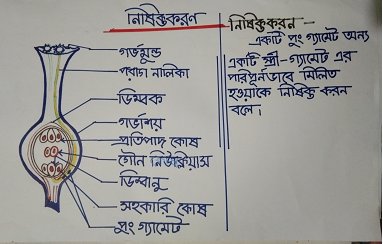 নিষিক্তকরণ
গর্ভমুন্ড
পরাগ নালিকা
ডিম্বক
গর্ভাশয়
প্রতিপাদ কোষ
গৌন নিউক্লিয়াস
ডিম্বানু
সহকারি কোষ
পুং গ্যামেট
নিষিক্তকরন -
একটি পুং গ্যামেট অন্য
একটি স্ত্রী-গ্যামেট এর
পরিপূর্নভাবে মিলিত
হওয়াকে নিষিক্ত করন
বলে।